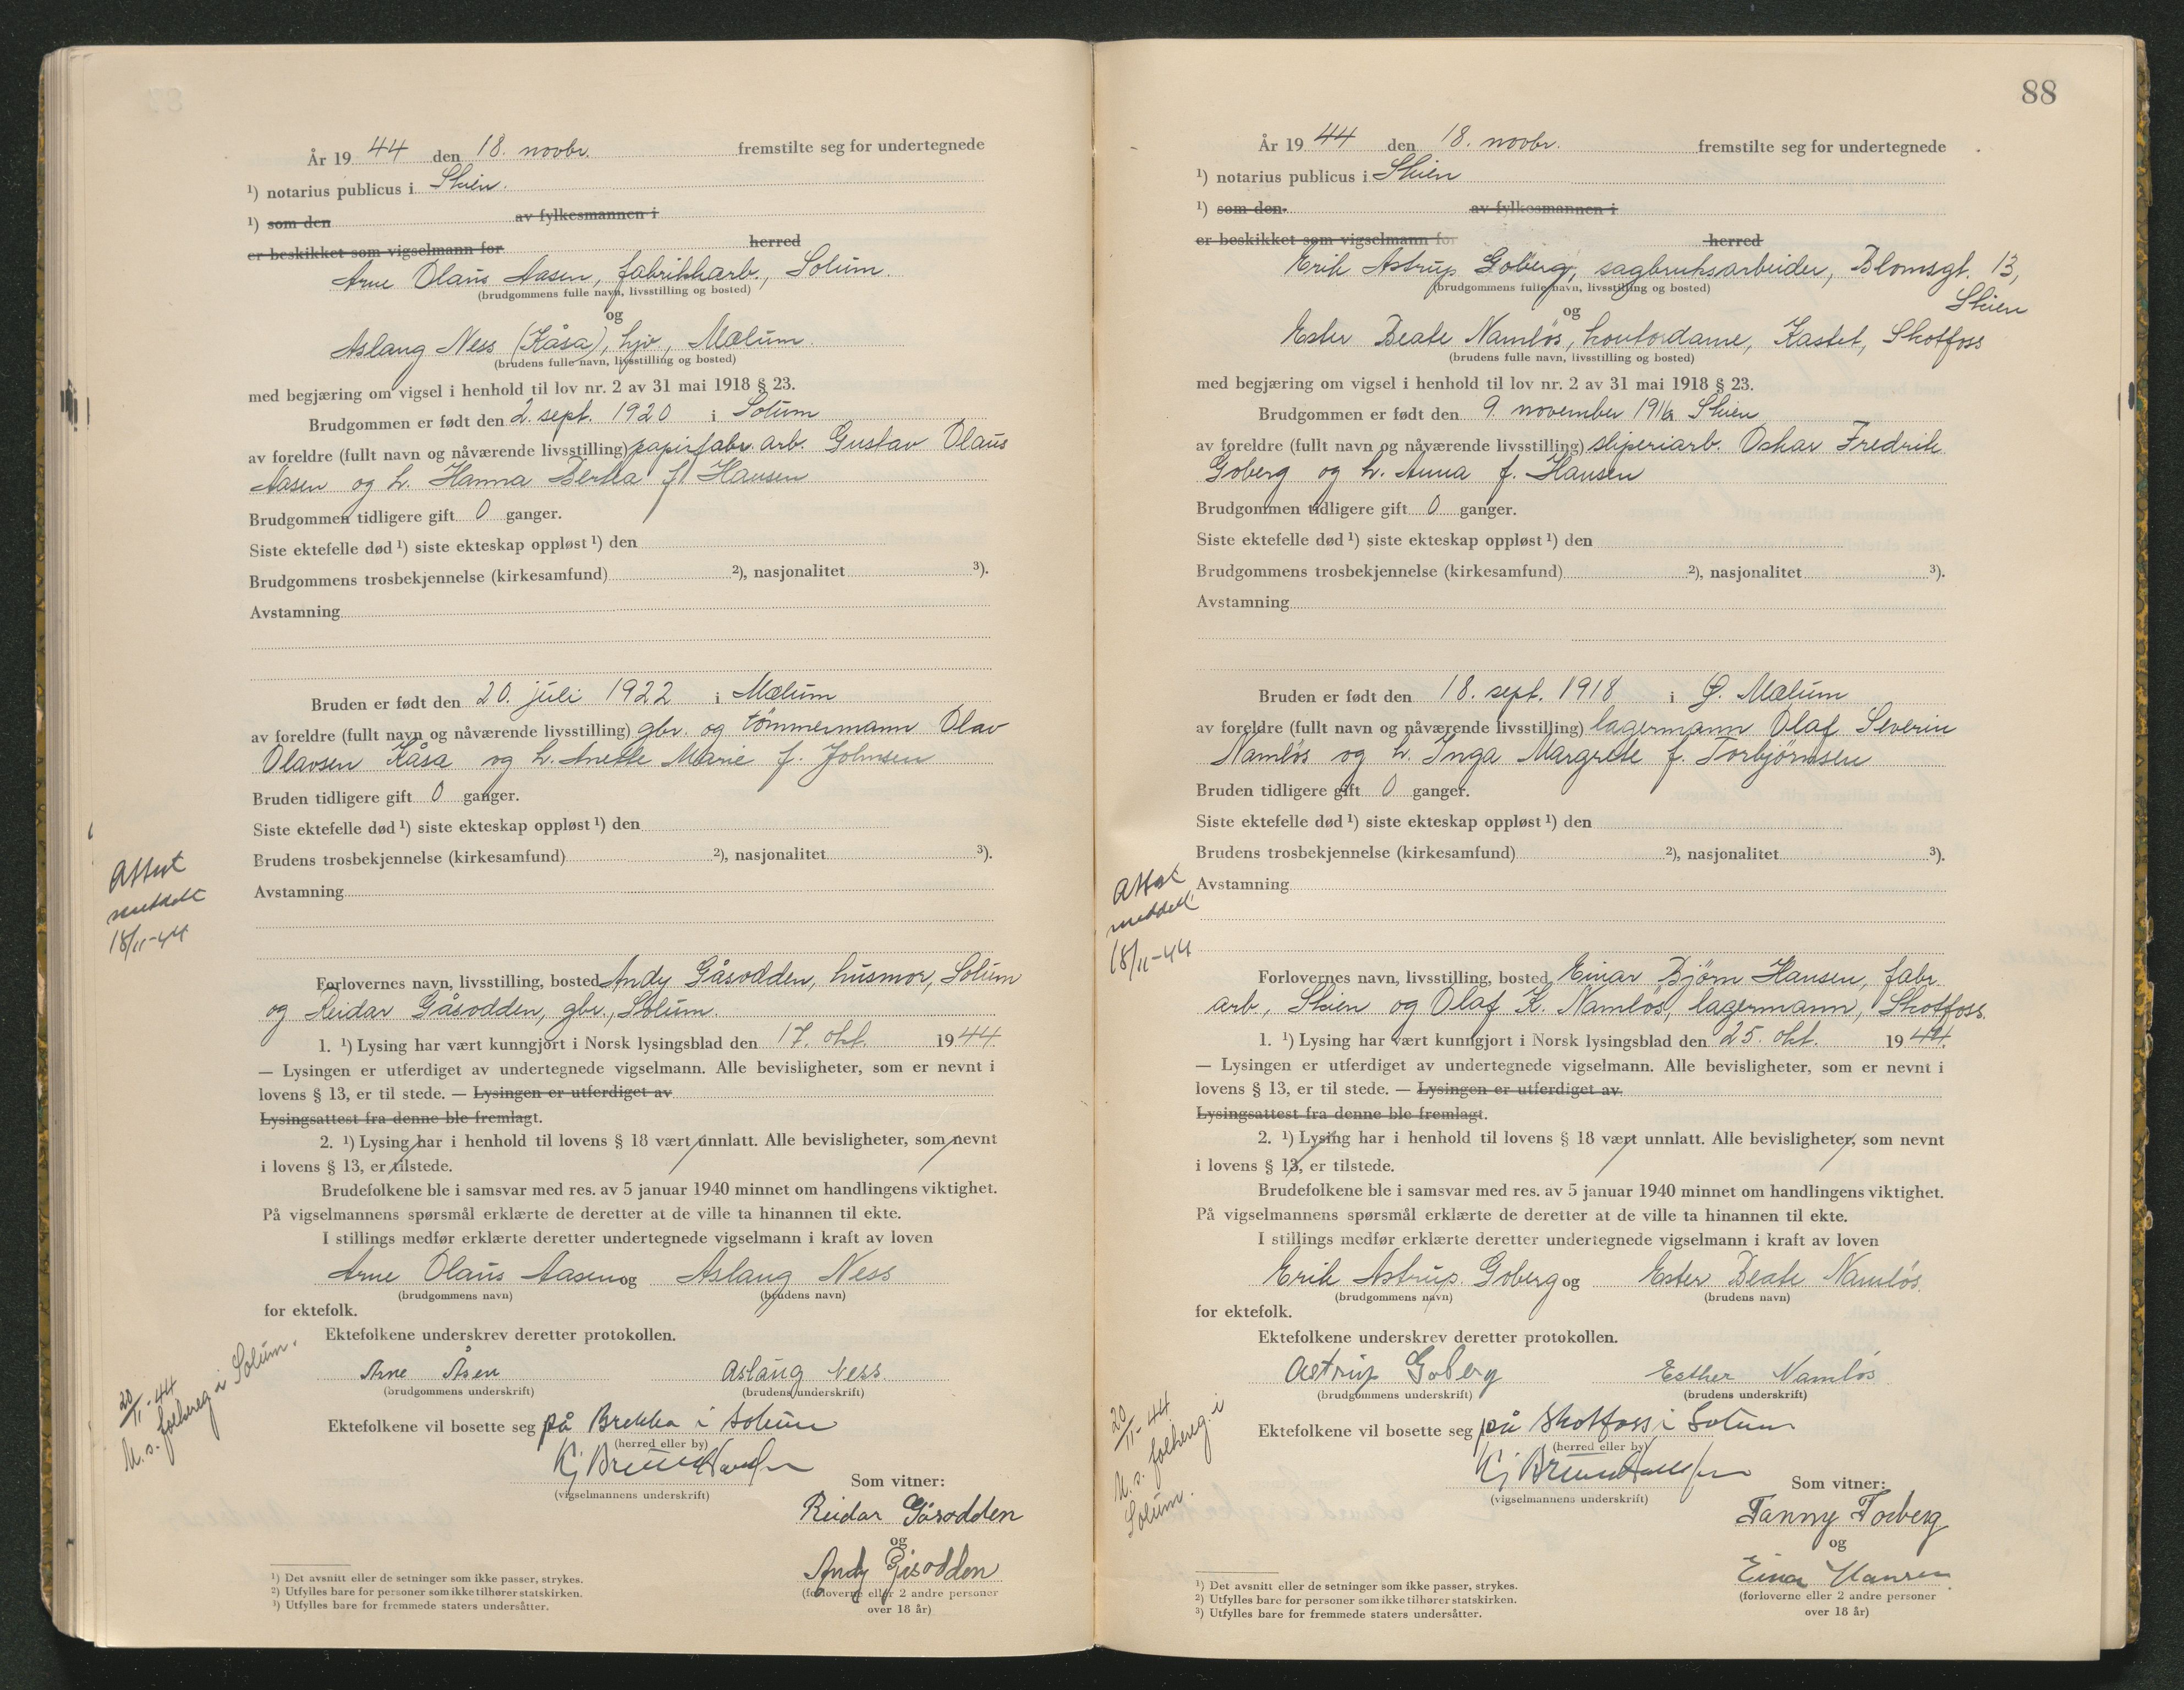 År 19 44 den 18. novbr. fremstilte seg for undertegnede
¹) notarius publicus i Skien.
¹) som den av fylkesmannen i
er beskikket som vigselmann for herred
Arne Olaus Aasen, fabrikkarb., Solum.
(brudgommens fulle navn, livsstilling og bosted)
og
Aslaug Ness (Kåsa), hjv., Mælum.
(brudens fulle navn, livsstilling og bosted)
med begjæring om vigsel i henhold til lov nr. 2 av 31 mai 1918 § 23.
Brudgommen er født den 2. sept. 1920 i Solum
av foreldre (fullt navn og nåværende livsstilling) papirfabr. arb. Gustav Olaus
Aasen og h. Hanna Bertha f. Hansen
Brudgommen tidligere gift 0 ganger.
Siste ektefelle død ¹) siste ekteskap oppløst ¹) den
Brudgommens trosbekjennelse (kirkesamfund) ²), nasjonalitet ³).
Avstamning
Bruden er født den 20. juli 1922 i Mælum
av foreldre (fullt navn og nåværende livsstilling) gbr. og tømmermann Olav
Olavsen Kåsa og h. Anette Marie f. Johnsen
Bruden tidligere gift 0 ganger.
Siste ektefelle død ¹) siste ekteskap oppløst ¹) den
Brudens trosbekjennelse (kirkesamfund) ²), nasjonalitet ³).
Avstamning
Attest
meddelt
18/11-44
Forlovernes navn, livsstilling, bosted Andy Gåsodden, husmor, Solum
og Reidar Gåsodden, gbr., Solum.
1. ¹) Lysing har vært kunngjort i Norsk lysingsblad den 17. okt. 1944
— Lysingen er utferdiget av undertegnede vigselmann. Alle bevisligheter, som er nevnt i
lovens § 13, er til stede. — Lysingen er utferdiget av
Lysingsattest fra denne ble fremlagt.
2. ¹) Lysing har i henhold til lovens § 18 vært unnlatt. Alle bevisligheter, som nevnt
i lovens § 13, er tilstede.
Brudefolkene ble i samsvar med res. av 5 januar 1940 minnet om handlingens viktighet.
På vigselmannens spørsmål erklærte de deretter at de ville ta hinannen til ekte.
I stillings medfør erklærte deretter undertegnede vigselmann i kraft av loven
Arne Olaus Aasen og Aslaug Ness
(brudgommens navn) (brudens navn)
for ektefolk.
Ektefolkene underskrev deretter protokollen.
Arne Åsen Aslaug Ness
(brudgommens underskrift) (brudens underskrift)
20/11-44
M. s. folkereg. i Solum.
Ektefolkene vil bosette seg på Brekka i Solum
(herred eller by)
(vigselmannens underskrift)
Som vitner:
Reidar Gåsodden
og
Andy Gåsodden
(forloverne eller 2 andre personer
over 18 år)
¹) Det avsnitt eller de setninger som ikke passer, strykes.
²) Utfylles bare for personer som ikke tilhører statskirken.
³) Utfylles bare for fremmede staters undersåtter.
88
År 19 44 den 18. novbr. fremstilte seg for undertegnede
¹) notarius publicus i Skien
¹) som den av fylkesmannen i
er beskikket som vigselmann for herred
Erik Astrup Goberg, sagbruksarbeider, Blomsgt. 13,
Skien
(brudgommens fulle navn, livsstilling og bosted)
og
Ester Beate Namløs, kontordame, Kastet, Skotfoss
(brudens fulle navn, livsstilling og bosted)
med begjæring om vigsel i henhold til lov nr. 2 av 31 mai 1918 § 23.
Brudgommen er født den 9. november 1916 Skien
av foreldre (fullt navn og nåværende livsstilling) sliperiarb. Oskar Fredrik
Goberg og h. Anna f. Hansen
Brudgommen tidligere gift 0 ganger.
Siste ektefelle død ¹) siste ekteskap oppløst ¹) den
Brudgommens trosbekjennelse (kirkesamfund) ²), nasjonalitet ³).
Avstamning
Bruden er født den 18. sept. 1918 i Ø. Mælum
av foreldre (fullt navn og nåværende livsstilling) lagermann Olaf Severin
Namløs og h. Inga Margrete f. Torbjørnsen
Bruden tidligere gift 0 ganger.
Siste ektefelle død ¹) siste ekteskap oppløst ¹) den
Brudens trosbekjennelse (kirkesamfund) ²), nasjonalitet ³).
Avstamning
Attest
meddelt
18/11-44
Forlovernes navn, livsstilling, bosted Einar Bjørn Hansen, fabr.
arb., Skien og Olaf K. Namløs, lagermann, Skotfoss.
1. ¹) Lysing har vært kunngjort i Norsk lysingsblad den 25. okt. 1944.
— Lysingen er utferdiget av undertegnede vigselmann. Alle bevisligheter, som er nevnt i
lovens § 13, er til stede. — Lysingen er utferdiget av
Lysingsattest fra denne ble fremlagt.
2. ¹) Lysing har i henhold til lovens § 18 vært unnlatt. Alle bevisligheter, som nevnt
i lovens § 13, er tilstede.
Brudefolkene ble i samsvar med res. av 5 januar 1940 minnet om handlingens viktighet.
På vigselmannens spørsmål erklærte de deretter at de ville ta hinannen til ekte.
I stillings medfør erklærte deretter undertegnede vigselmann i kraft av loven
Erik Astrup Goberg og Ester Beate Namløs.
(brudgommens navn) (brudens navn)
for ektefolk.
Ektefolkene underskrev deretter protokollen.
Astrup Goberg Esther Namløs
(brudgommens underskrift) (brudens underskrift)
20/11-44
M. s. folkereg. i
Solum.
Ektefolkene vil bosette seg på Skotfoss i Solum
(herred eller by)
(vigselmannens underskrift)
Som vitner:
Fanny Forberg
og
Einar Hansen
(forloverne eller 2 andre personer
over 18 år)
¹) Det avsnitt eller de setninger som ikke passer, strykes.
²) Utfylles bare for personer som ikke tilhører statskirken.
³) Utfylles bare for fremmede staters undersåtter.